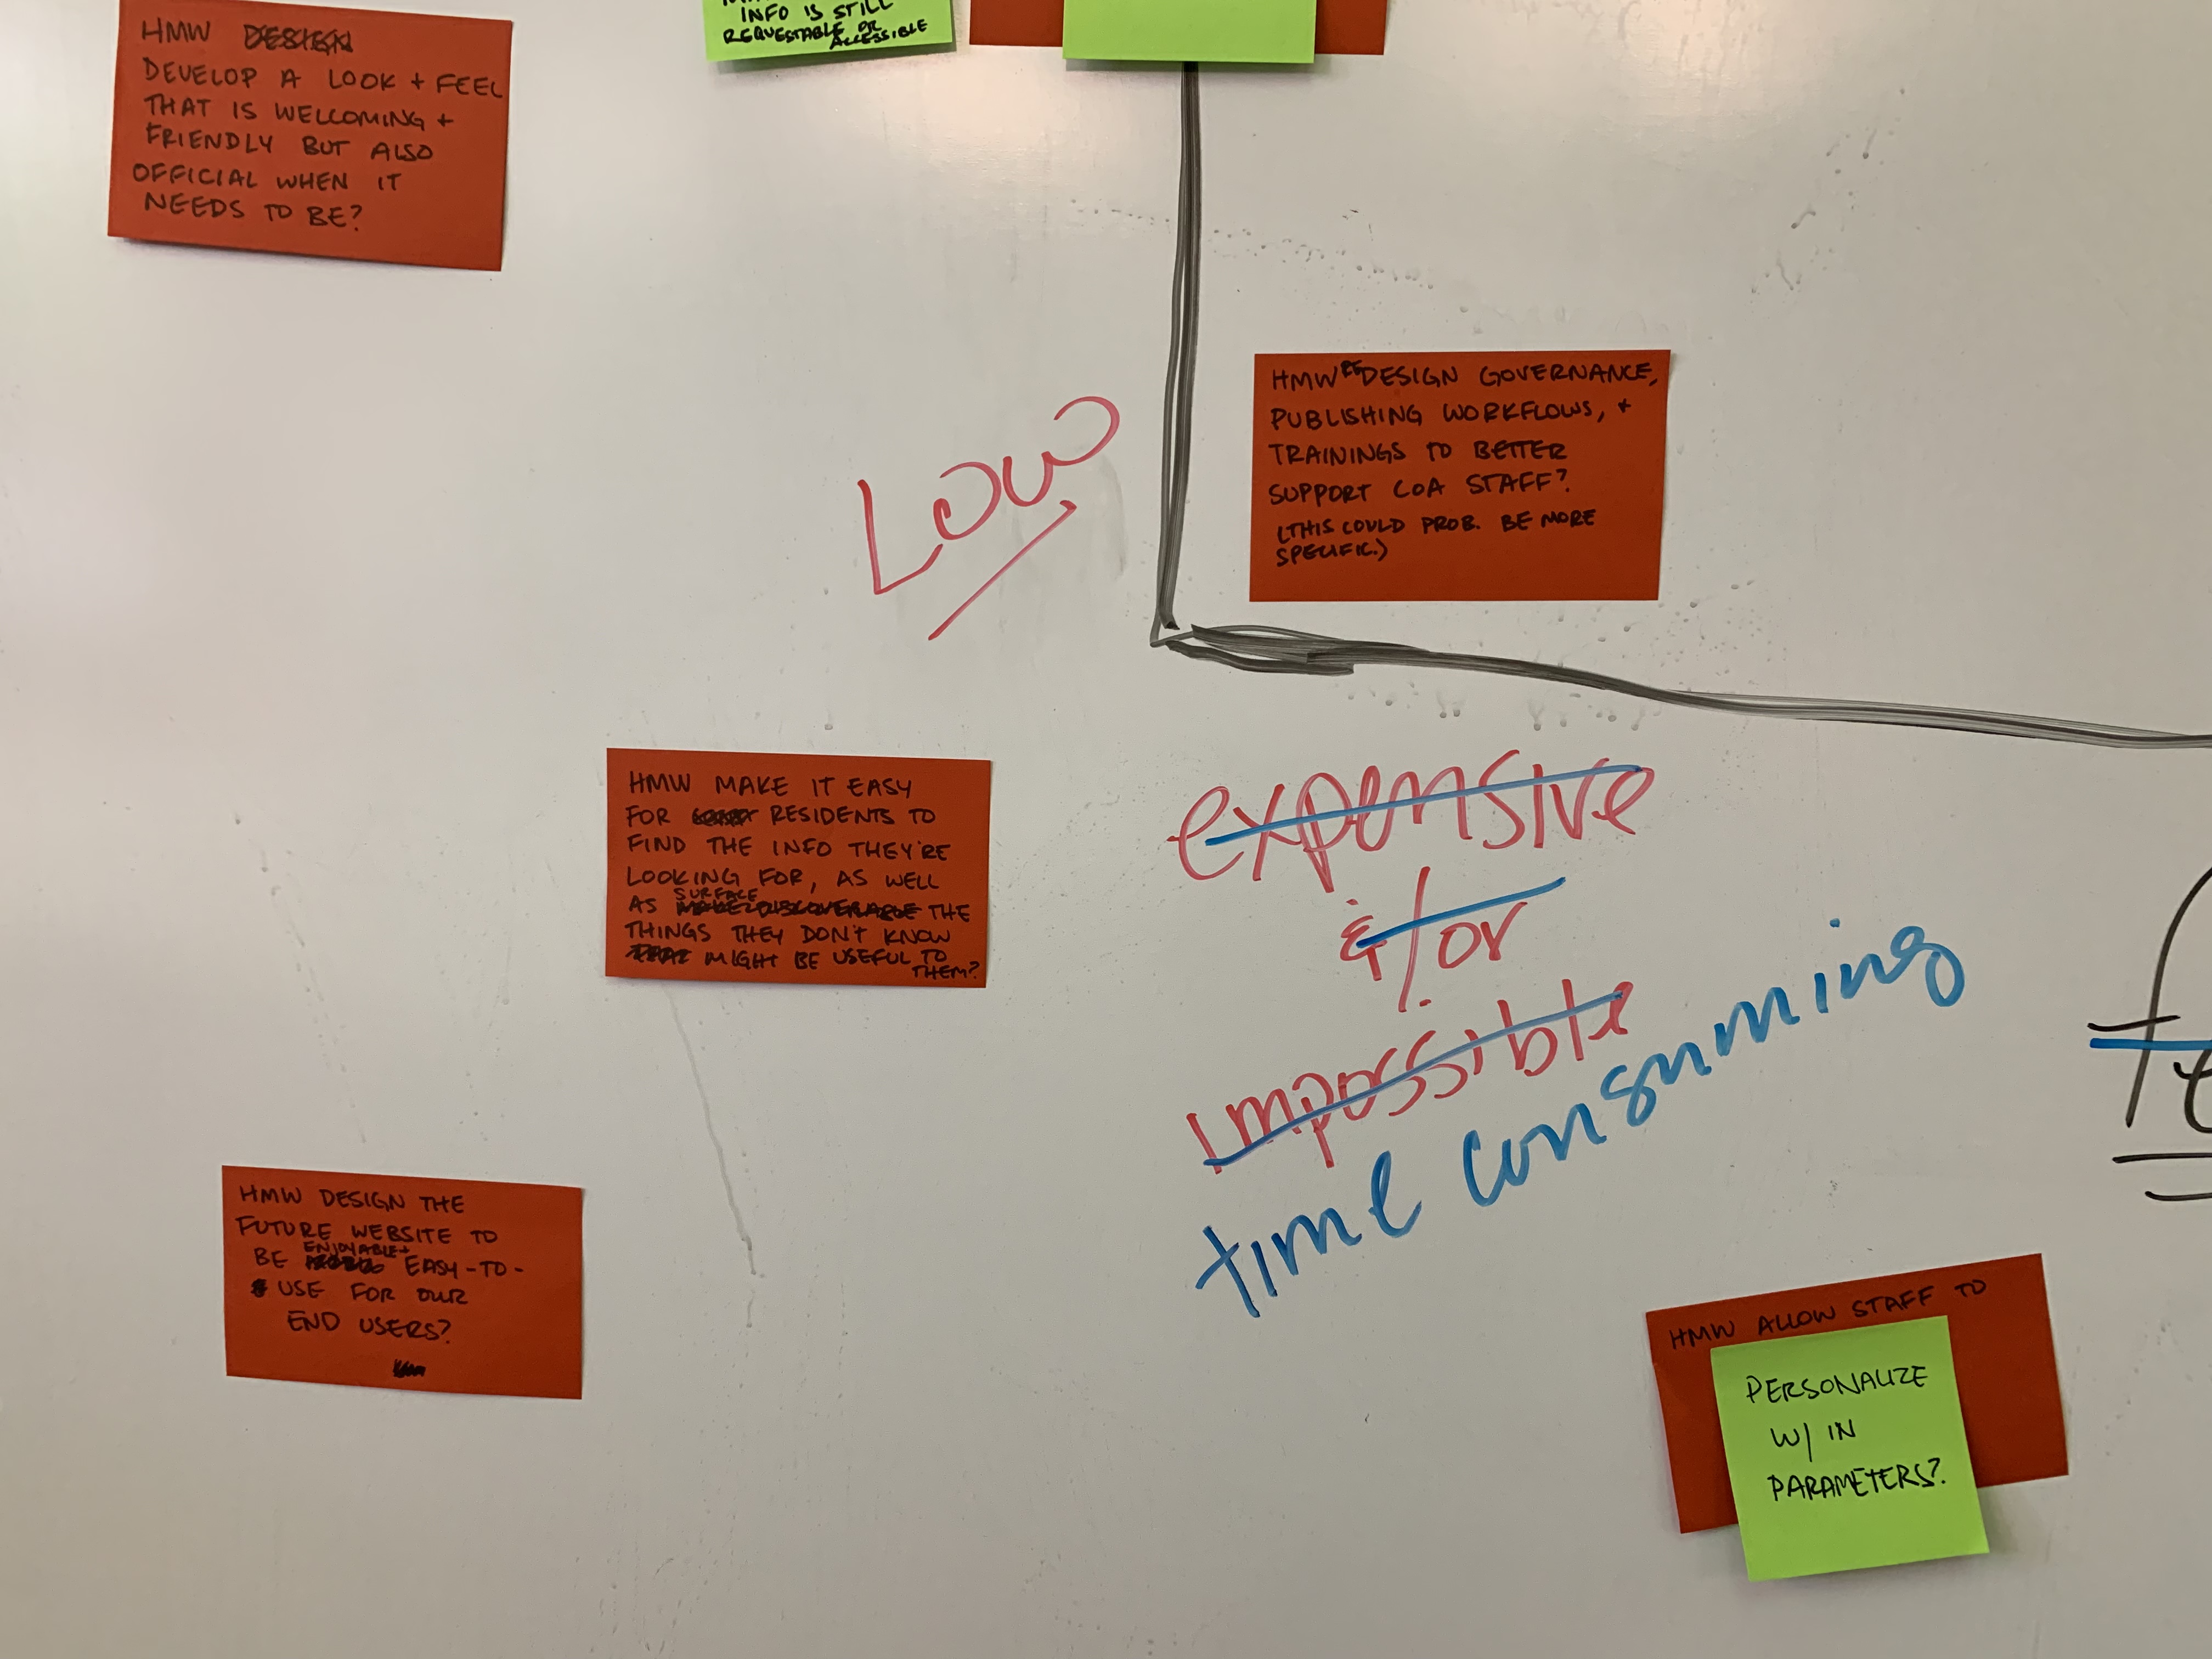 HMW DESIGN
DEVELOP A LOOK + FEEL
THAT IS WELCOMING +
FRIENDLY BUT ALSO
OFFICIAL WHEN IT
NEEDS TO BE?
INFO IS STILL
REQUESTABLE OR
ACCESSIBLE
LOW
HMW REDESIGN GOVERNANCE,
PUBLISHING WORKFLOWS, +
TRAININGS TO BETTER
SUPPORT COA STAFF?
(THIS COULD PROB. BE MORE
SPECIFIC.)
HMW MAKE IT EASY
FOR RESIDENTS TO
FIND THE INFO THEY'RE
LOOKING FOR, AS WELL
AS SURFACE MAKE DISCOVERABLE THE
THINGS THEY DON'T KNOW
THAT MIGHT BE USEFUL TO
THEM?
expensive
&/or
impossible
time consuming
HMW DESIGN THE
FUTURE WEBSITE TO
BE ENJOYABLE + EASY-TO-
USE FOR OUR
END USERS?
HMW ALLOW STAFF TO
PERSONALIZE
W/ IN
PARAMETERS?